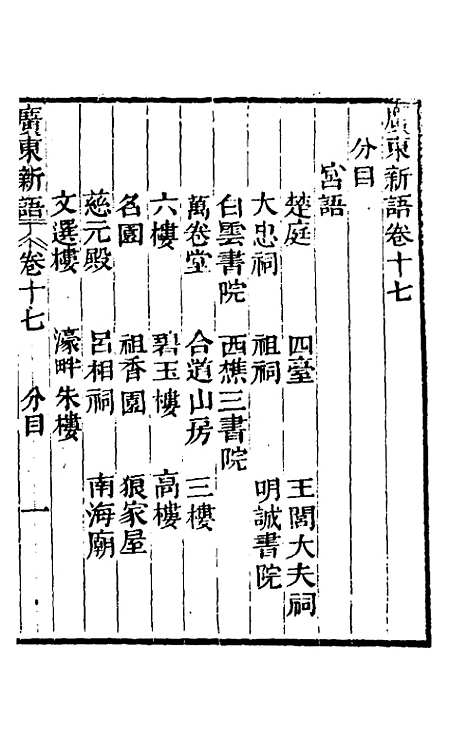 廣東新語卷十七
分目
宮語
楚庭　四臺　王閭大夫祠
大忠祠　祖祠　明誠書院
白雲書院　西樵三書院
萬卷堂　合道山房　三樓
六樓　碧玉樓　高樓
名園　祖香園　狼家屋
慈元殿　呂相祠　南海廟
文選樓　濠畔朱樓
廣東新語　卷十七　分目　一